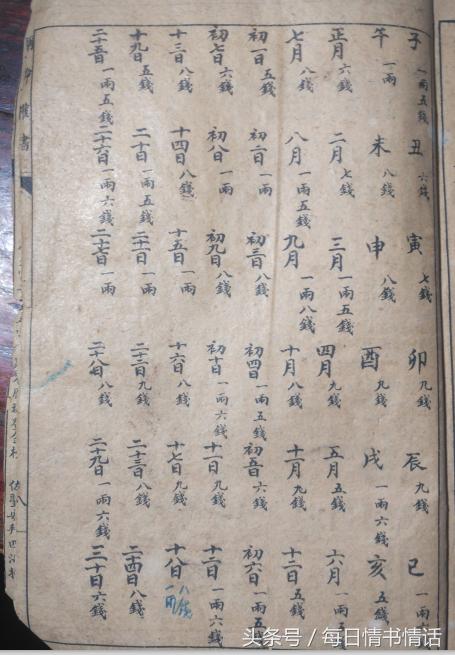 子 一兩五錢 丑 六錢 寅 七錢 卯 九錢 辰 九錢 巳 一兩
午 一兩 未 八錢 申 八錢 酉 九錢 戌 一兩六錢 亥 五錢
正月 六錢 二月 七錢 三月 一兩五錢 四月 九錢 五月 五錢 六月 一兩五
七月 八錢 八月 一兩五錢 九月 一兩八錢 十月 八錢 十一月 九錢 十二月 五錢
初一日 五錢 初二日 一兩 初三日 八錢 初四日 一兩五錢 初五日 六錢 初六日 一兩五錢
初七日 六錢 初八日 一兩 初九日 八錢 初十日 一兩六錢 十一日 九錢 十二日 一兩六錢
十三日 八錢 十四日 八錢 十五日 一兩 十六日 八錢 十七日 九錢 十八日 一兩 八錢
十九日 五錢 二十日 一兩五錢 二十一日 一兩 二十二日 九錢 二十三日 八錢 二十四日 八錢
二十五日 一兩五錢 二十六日 一兩六錢 二十七日 一兩 二十八日 八錢 二十九日 一兩六錢 三十日 六錢
書
头条号 / 每日情书情话